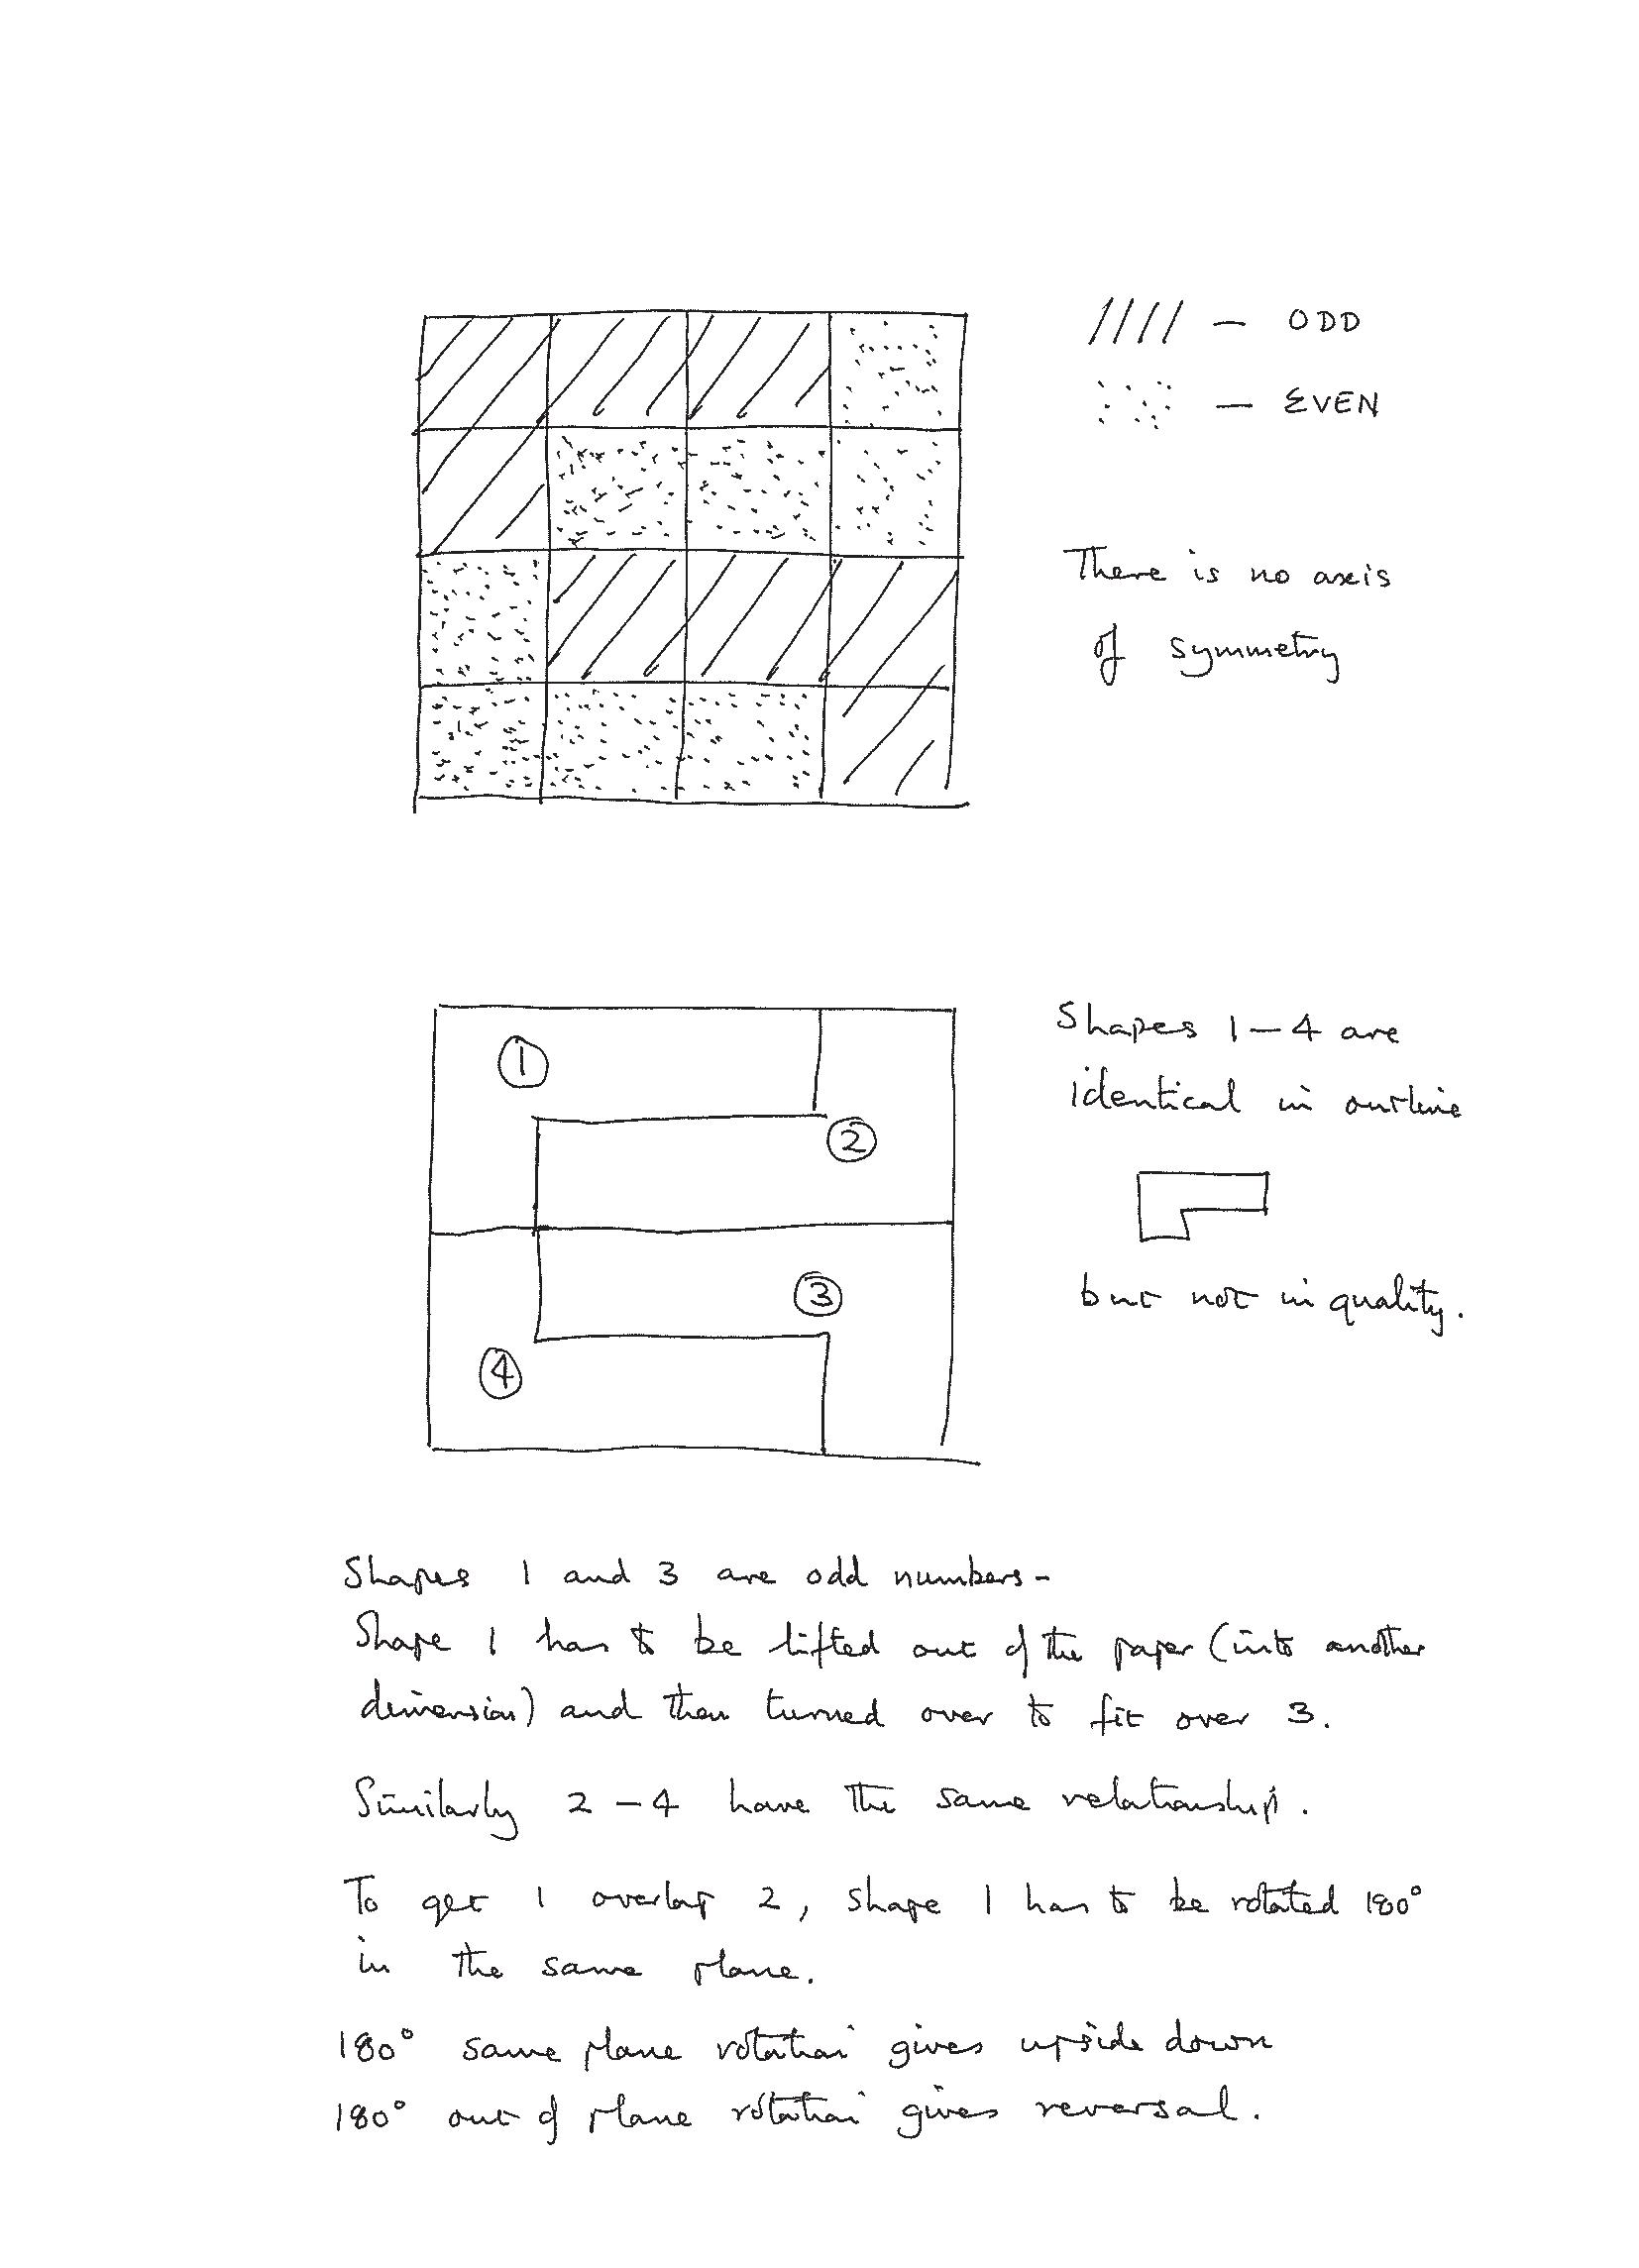 //// — ODD
— EVEN
There is no axis
of symmetry
①
②
③
④
Shapes 1 – 4 are
identical in outline
but not in quality.
Shapes 1 and 3 are odd numbers -
Shape 1 has to be lifted out of the paper (into another
dimension) and then turned over to fit over 3.
Similarly 2 – 4 have the same relationship.
To get 1 overlap 2, shape 1 has to be rotated 180°
in the same plane.
180° same plane rotation gives upside down
180° out of plane rotation gives reversal.